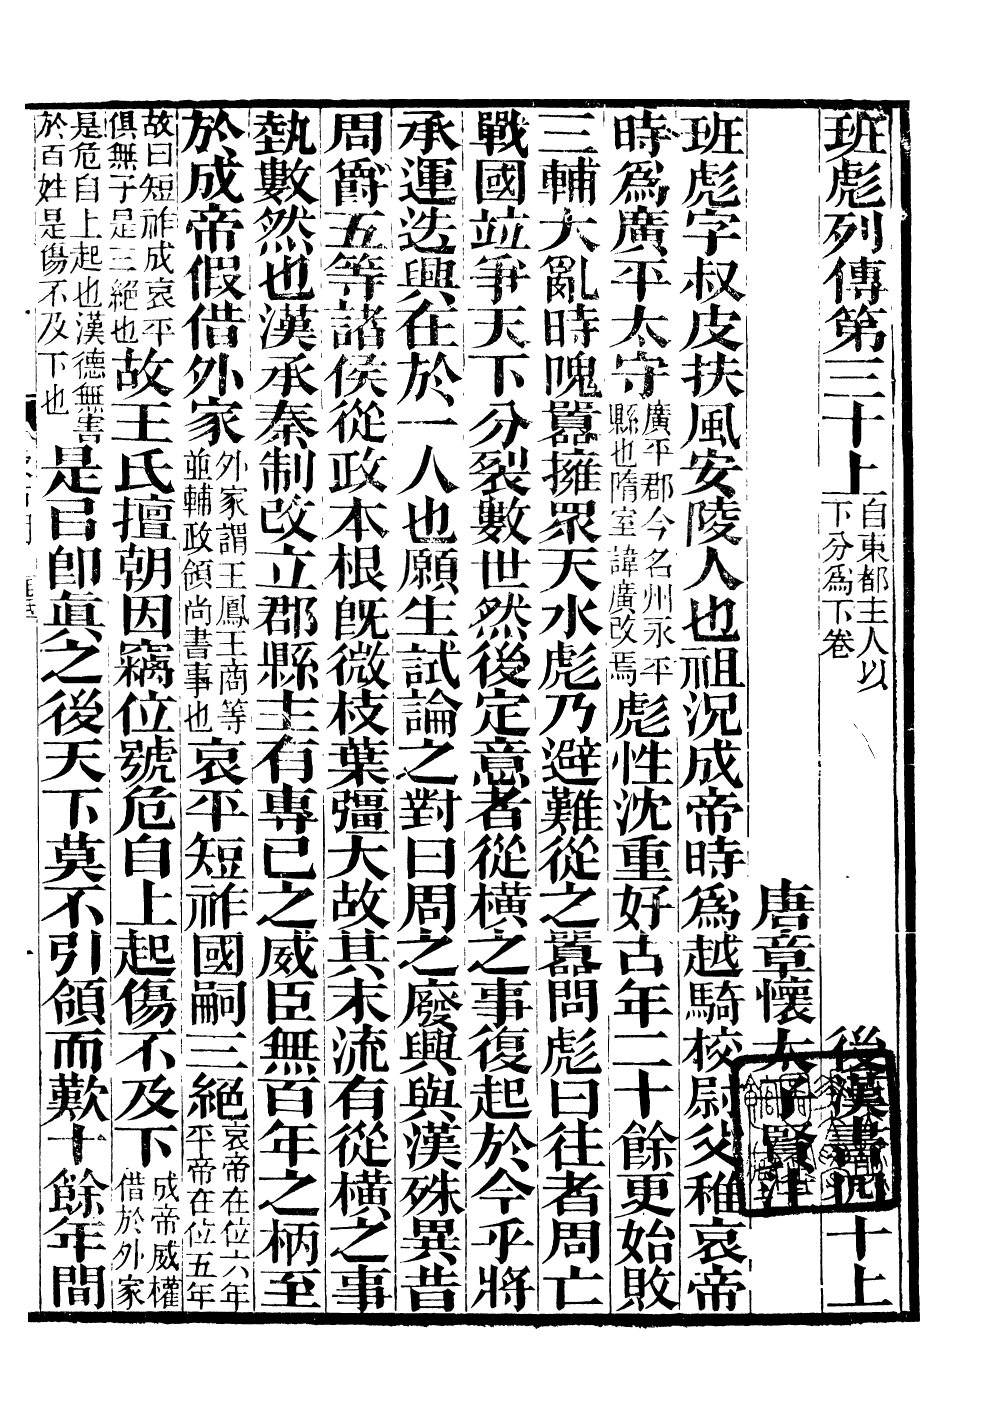 班彪列傳第三十上自東都主人以下分爲下卷　後漢書四十上
唐章懷太子賢注
班彪字叔皮扶風安陵人也祖況成帝時爲越騎校尉父稚哀帝
時爲廣平太守廣平郡今名州永平縣也隋室諱廣改焉彪性沈重好古年二十餘更始敗
三輔大亂時隗囂擁眾天水彪乃避難從之囂問彪曰往者周亡
戰國竝爭天下分裂數世然後定意者從橫之事復起於今乎將
承運迭興在於一人也願生試論之對曰周之廢興與漢殊異昔
周爵五等諸侯從政本根旣微枝葉彊大故其末流有從橫之事
埶數然也漢承秦制改立郡縣主有專己之威臣無百年之柄至
於成帝假借外家外家謂王鳳王商等並輔政領尚書事也哀平短祚國嗣三絕哀帝在位六年平帝在位五年
故曰短祚成哀平俱無子是三絕也故王氏擅朝因竊位號危自上起傷不及下成帝威權借於外家
是危自上起也漢德無害於百姓是傷不及下也是以卽眞之後天下莫不引領而歎十餘年閒